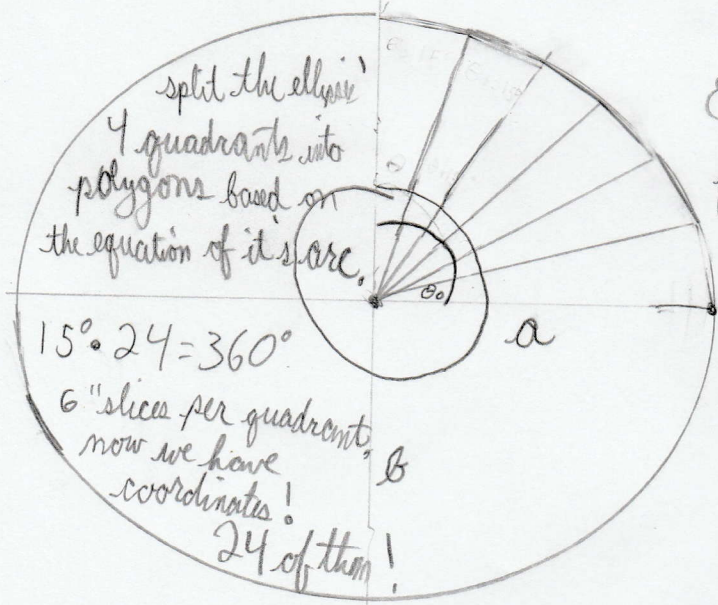 split the ellipse'
4 quadrants into
polygons based on
the equation of it's arc.
θ₀
a
15°·24=360°
6 "slices per quadrant"
now we have
coordinates!
24 of them!
b